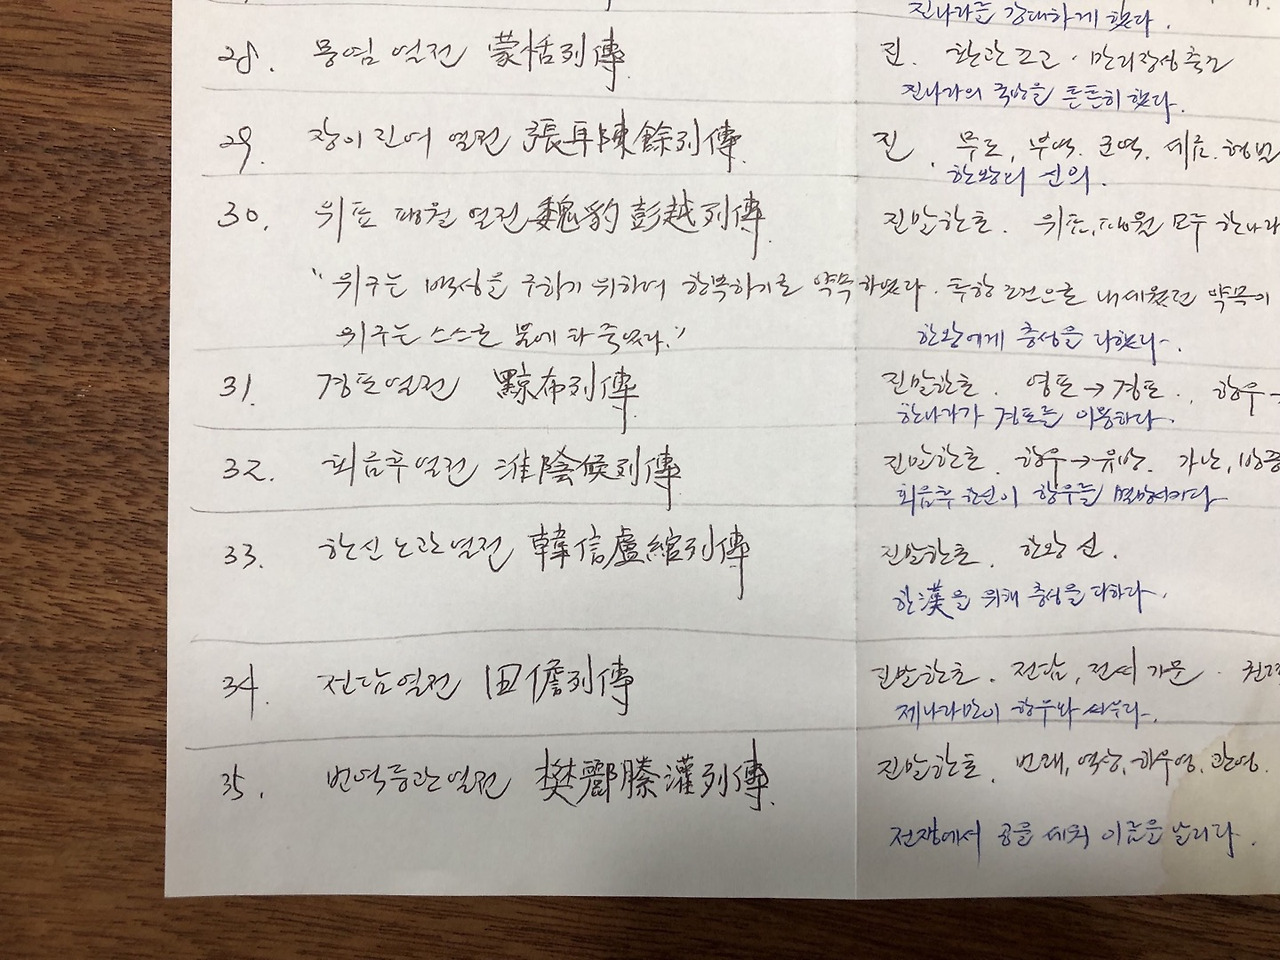 진나라를 강대하게 했다.
28. 몽염 열전 蒙恬列傳 진. 환관 조고. 만리장성 축조
진나라의 국방을 튼튼히 했다.
29. 장이 진여 열전 張耳陳餘列傳 진. 무도, 부역. 군역. 세금. 형벌
한왕의 신의.
30. 위표 팽월 열전 魏豹彭越列傳 진말한초. 위표, 팽월 모두 한나라
"위구는 백성을 구하기 위하여 항복하기로 약속하였다. 투항 조건으로 내세웠던 약속이
위구는 스스로 불에 타 죽었다." 한왕에게 충성을 다했다.
31. 경포열전 黥布列傳 진말한초. 영포→경포., 항우→
한나라가 경포를 이용하다.
32. 회음후열전 淮陰候列傳 진말한초. 항우→유방. 가난,
회음후 한신이 항우를
33. 한신 노관열전 韓信盧綰列傳 진말한초. 한왕 신.
한漢을 위해 충성을 다하다.
34. 전담열전 田儋列傳 진말한초. 전담, 전씨 가문.
제나라만이 항우와 싸우다.
35. 번역등관열전 樊酈滕灌列傳 진말한초. 번쾌, 역상, 하후영, 관영.
전쟁에서 공을 세워 이름을 날리다.